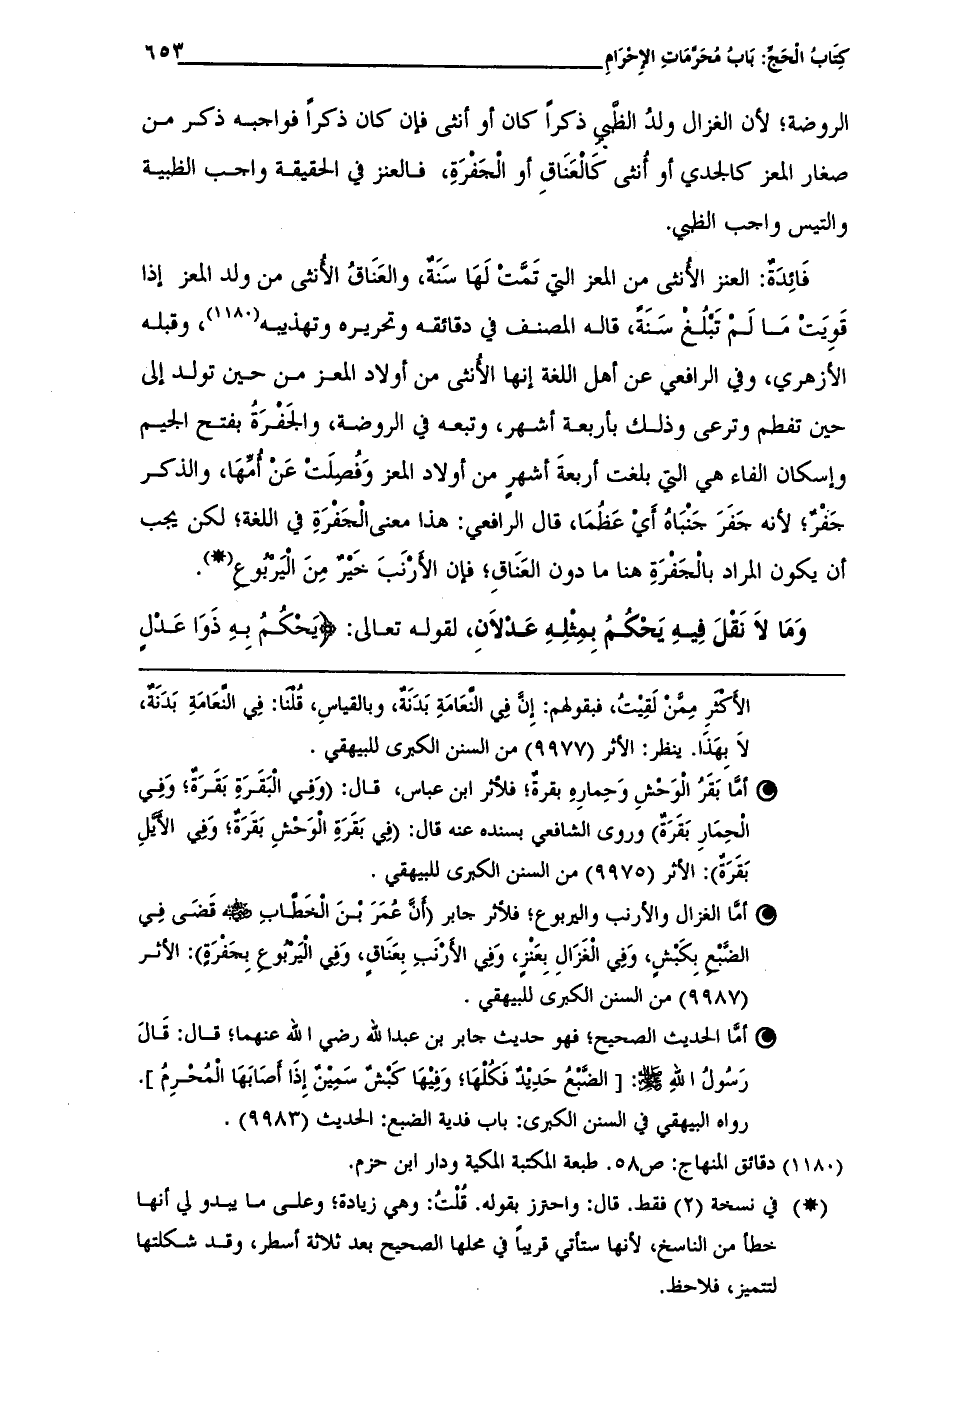 كِتَابُ الْحَجِّ: بَابُ مُحَرَّمَاتِ الإِحْرَامِ ٦٥٣
الروضة؛ لأن الغزال ولدُ الظَّبيِ ذكراً كان أو أنثى فإن كان ذكراً فواجبه ذكر من
صغار المعز كالجدي أو أُنثى كَالْعَنَاقِ أو الْجَفْرَةِ، فالعنز في الحقيقة واجب الظبية
والتيس واجب الظبي.
فَائِدَةٌ: العنز الأُنثى من المعز التي تَمَّتْ لَهَا سَنَةٌ، والعَنَاقُ الأُنثى من ولد المعز إذا
قَوِيَتْ مَا لَمْ تَبْلُغْ سَنَةً، قاله المصنف في دقائقه وتحريره وتهذيبه(١١٨٠)، وقبله
الأزهري، وفي الرافعي عن أهل اللغة إنها الأُنثى من أولاد المعز من حين تولد إلى
حين تفطم وترعى وذلك بأربعة أشهر، وتبعه في الروضة، والجَفْرَةُ بفتح الجيم
وإسكان الفاء هي التي بلغت أربعةَ أشهرٍ من أولاد المعز وَفُصِلَتْ عَنْ أُمِّهَا، والذكر
جَفْرٌ؛ لأنه جَفَرَ جَنْبَاهُ أَيْ عَظُمَا، قال الرافعي: هذا معنى الْجَفْرَةِ في اللغة؛ لكن يجب
أن يكون المراد بالْجَفْرَةِ هنا ما دون العَنَاقِ؛ فإن الأَرْنَبَ خَيْرٌ مِنَ الْيَرْبُوعِ(*).
وَمَا لاَ نَقْلَ فِيهِ يَحْكُمُ بِمِثْلِهِ عَدْلاَنِ، لقوله تعالى: ﴿يَحْكُمُ بِهِ ذَوَا عَدْلٍ
الأَكْثَرِ مِمَّنْ لَقِيْتُ، فبقولهم: إِنَّ فِي النَّعَامَةِ بَدَنَةٌ، وبالقياسِ، قُلْنَا: فِي النَّعَامَةِ بَدَنَةٌ،
لاَ بِهَذَا. ينظر: الأثر (٩٩٧٧) من السنن الكبرى للبيهقي .
أمَّا بَقَرُ الْوَحْشِ وَحِمارِهِ بقرةٌ؛ فلأثر ابن عباس، قال: (وَفِي الْبَقَرَةِ بَقَرَةٌ؛ وَفِي
الْحِمَارِ بَقَرَةٌ) وروى الشافعي بسنده عنه قال: (فِي بَقَرَةِ الْوَحْشِ بَقَرَةٌ؛ وَفِي الأَيِّلِ
بَقَرَةٌ): الأثر (٩٩٧٥) من السنن الكبرى للبيهقي .
أمَّا الغزال والأرنب واليربوع؛ فلأثر جابر (أَنَّ عُمَرَ بْنَ الْخَطَّابِ ﷺ قَضَى فِي
الضَّبْعِ بِكَبْشٍ، وَفِي الْغَزَالِ بِعَنْزٍ، وَفِي الأَرْنَبِ بِعَنَاقٍ، وَفِي الْيَرْبُوعِ بِجَفْرَةٍ): الأثر
(٩٩٨٧) من السنن الكبرى للبيهقي .
أمَّا الحديث الصحيح؛ فهو حديث جابر بن عبدالله رضي الله عنهما؛ قال: قَالَ
رَسُولُ اللهِ ﷺ: [ الضَّبْعُ حَدِيْدٌ فَكُلْهَا؛ وَفِيْهَا كَبْشٌ سَمِيْنٌ إِذَا أَصَابَهَا الْمُحْرِمُ ].
رواه البيهقي في السنن الكبرى: باب فدية الضبع: الحديث (٩٩٨٣) .
(١١٨٠) دقائق المنهاج: ص٥٨. طبعة المكتبة المكية ودار ابن حزم.
(*) في نسخة (٢) فقط. قال: واحترز بقوله. قُلْتُ: وهي زيادة؛ وعلى ما يبدو لي أنها
خطأ من الناسخ، لأنها ستأتي قريباً في محلها الصحيح بعد ثلاثة أسطر، وقد شكلتها
لتتميز، فلاحظ.